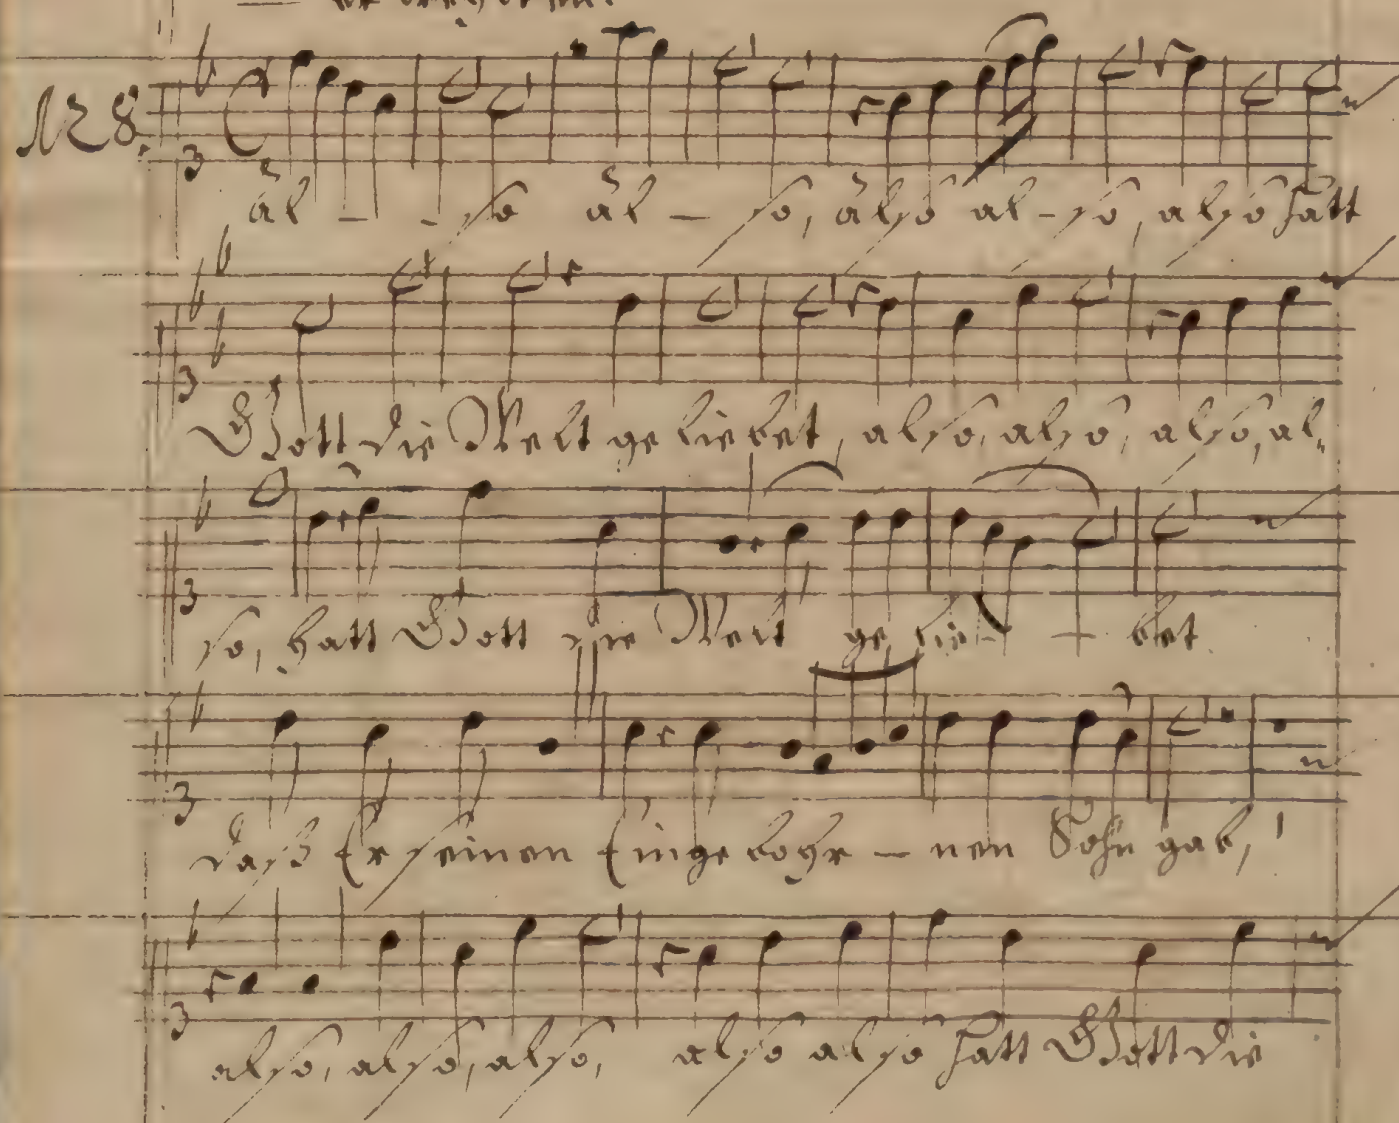 128.
al - - so al - so, also al-so, also hatt
Gott die Welt geliebet, also, also, also, al-
so, hatt Gott die Welt gelie - - bet
daß Er seinen Eingebohr - nen Sohn gab,
also, also, also, also also hatt Gott die